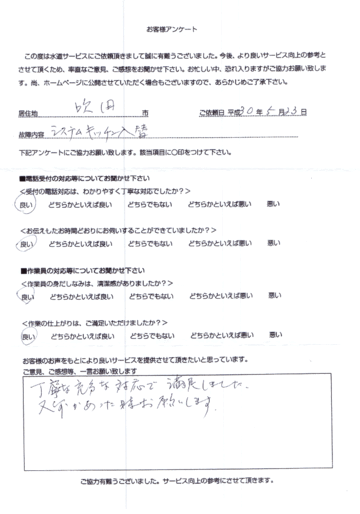 お客様アンケート
この度は水道サービスにご依頼頂きまして誠に有難うございました。今後、より良いサービス向上の参考と
させて頂くため、率直なご意見、ご感想をお聞かせ下さい。お忙しい中、恐れ入りますがご協力お願い致しま
す。尚、ホームページに公開させていただく場合もございますので、あらかじめご了承下さい。
居住地 吹田 市 ご依頼日 平成30年 5月23日
故障内容 システムキッチン入替
下記アンケートにご協力お願い致します。該当項目に〇印をつけて下さい。
■電話受付の対応等についてお聞かせ下さい
<受付の電話対応は、わかりやすく丁寧な対応でしたか?>
良い どちらかといえば良い どちらでもない どちらかといえば悪い 悪い
<お伝えしたお時間どおりにお伺いすることができていましたか?>
良い どちらかといえば良い どちらでもない どちらかといえば悪い 悪い
■作業員の対応等についてお聞かせ下さい
<作業員の身だしなみは、清潔感がありましたか?>
良い どちらかといえば良い どちらでもない どちらかといえば悪い 悪い
<作業の仕上がりは、ご満足いただけましたか?>
良い どちらかといえば良い どちらでもない どちらかといえば悪い 悪い
お客様のお声をもとにより良いサービスを提供させて頂きたいと思っています。
ご意見、ご感想等、一言お願い致します
丁寧な 対応で 満足しました。
又何かあった時お願いします。
ご協力有難うございました。サービス向上の参考にさせて頂きます。